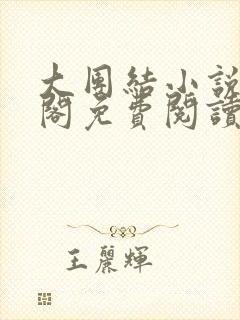 大團結小說
閣免費閱讀
王麗輝